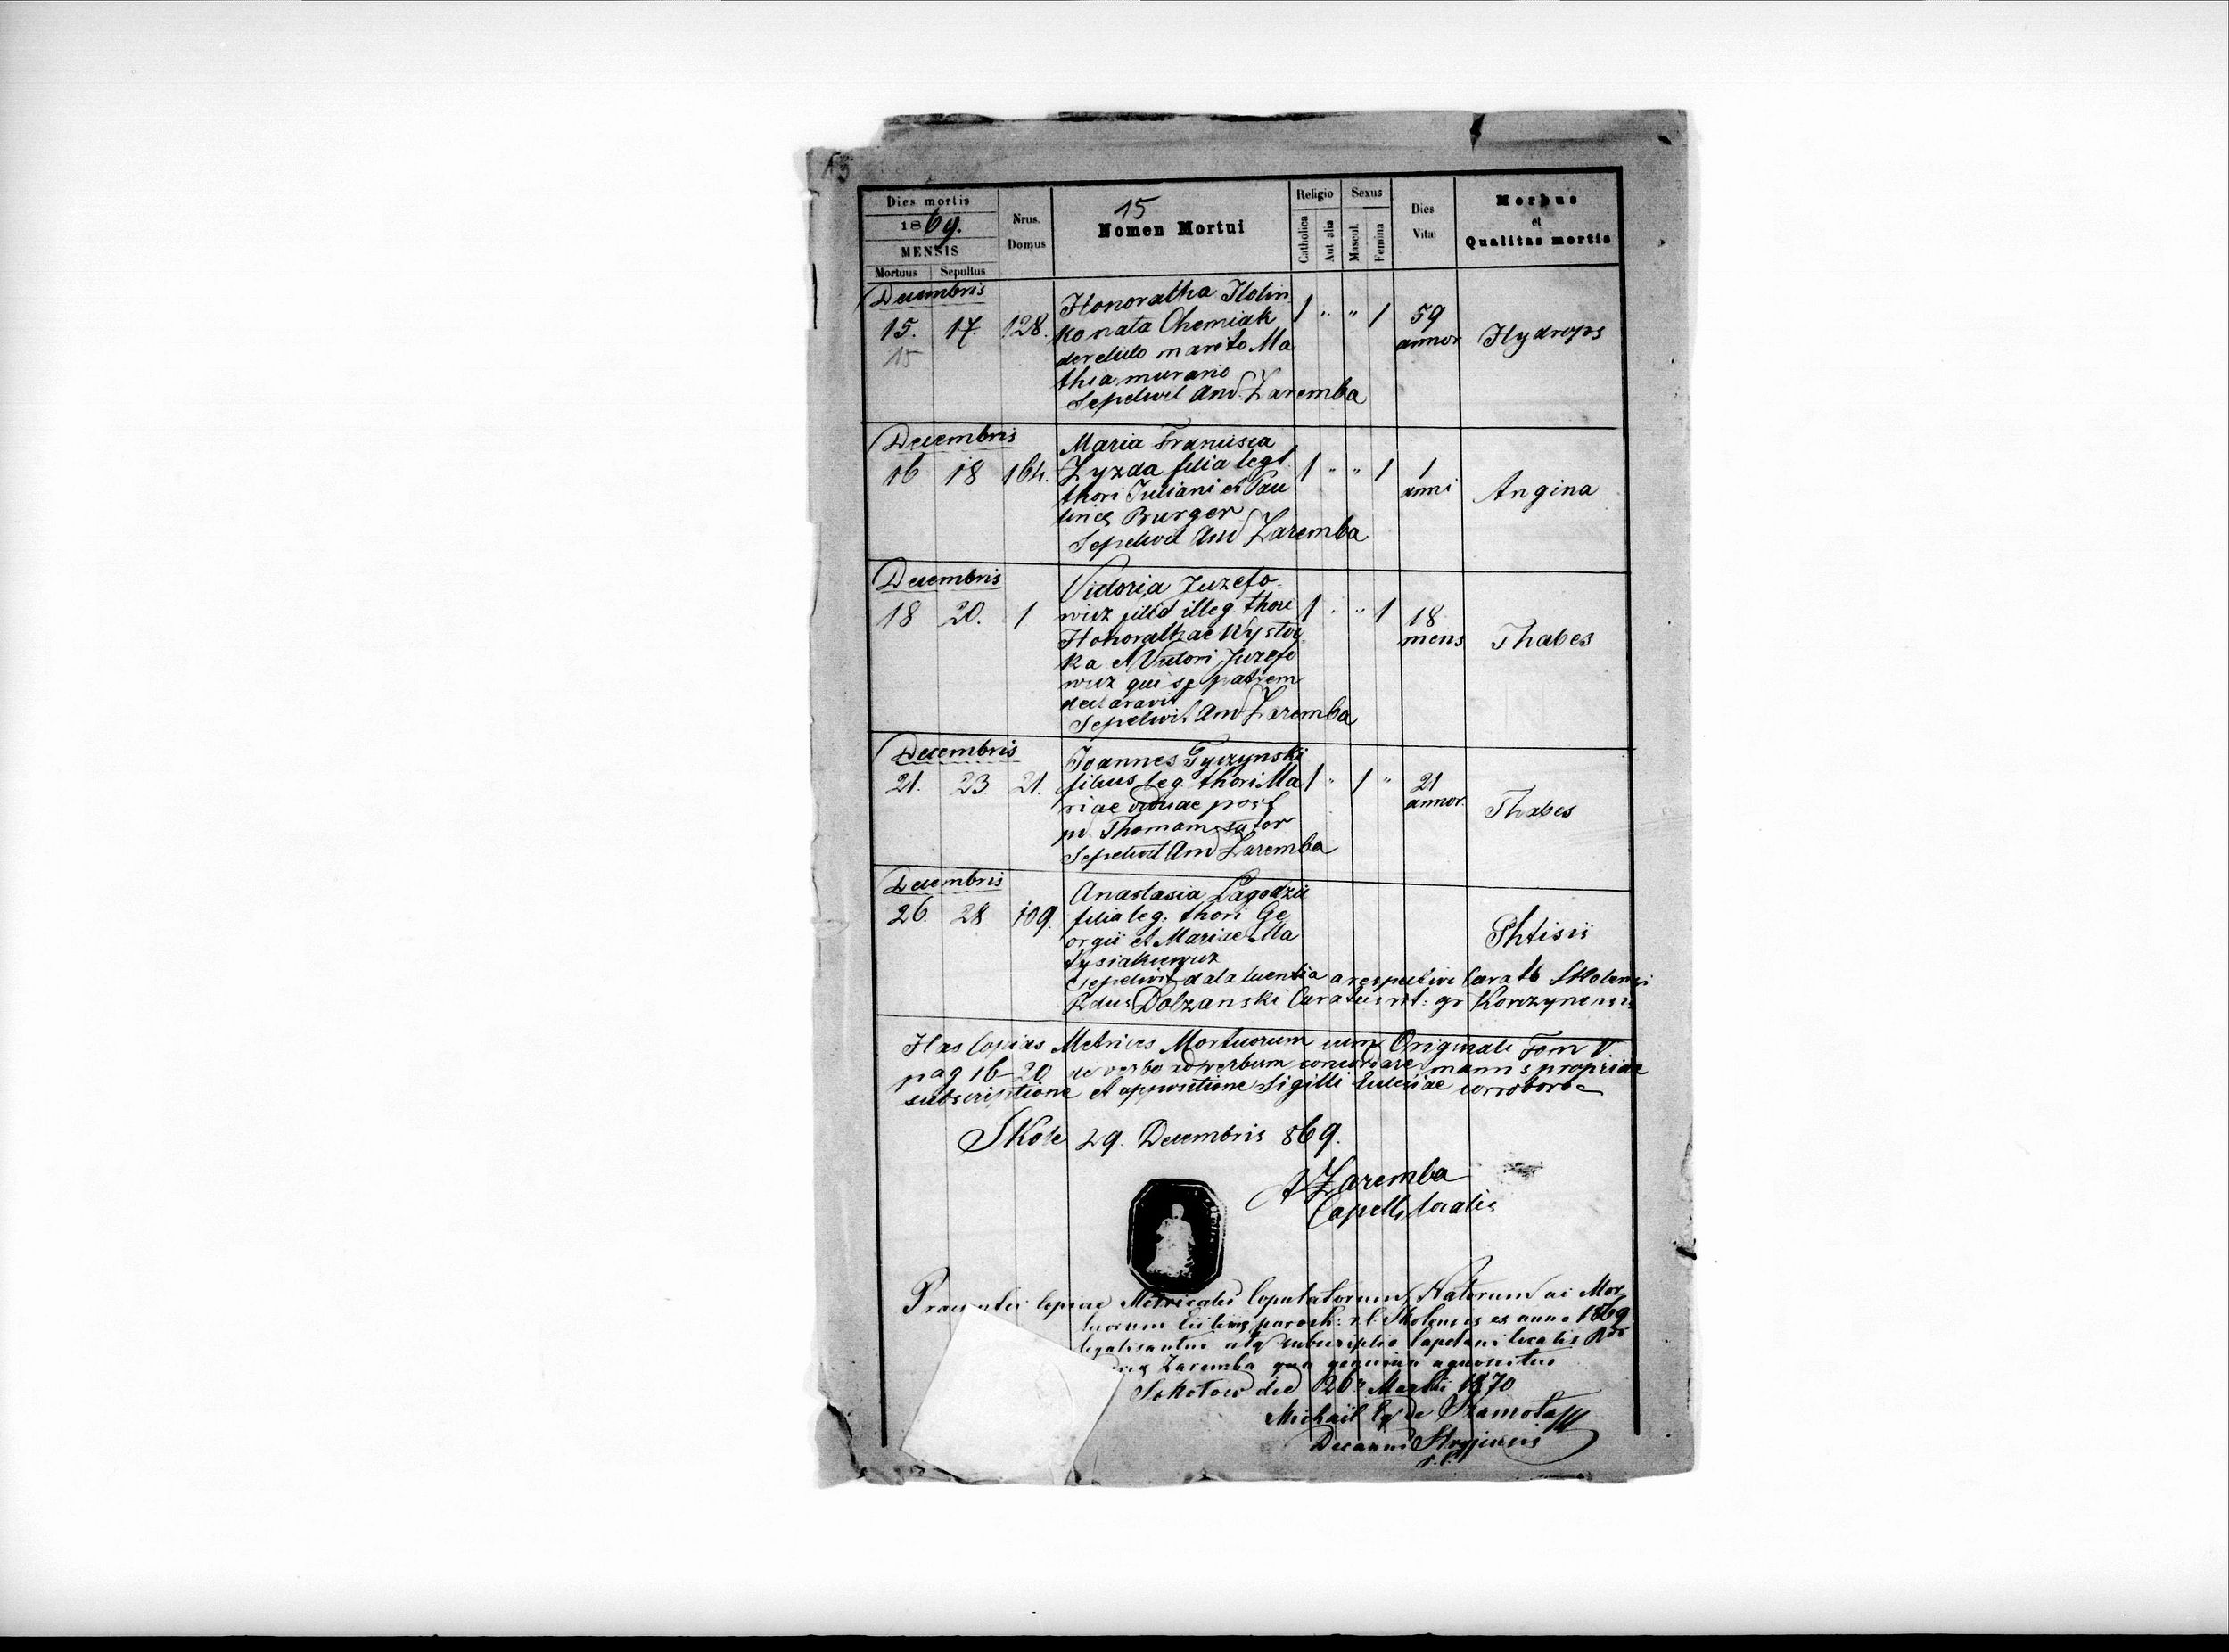 15
Dies mortis
1869.
MENSIS
Mortuus
Sepultus
Nrus. Domus
15
Nomen Mortui
Religio
Catholica
Aut alia
Sexus
Mascul.
Femina
Dies Vitæ
Morbus
et
Qualitas mortis
Decembris
15. 17. 128.
15
Honoratha
ko nata Chemiak
derelicto marito Ma
thia murario
Sepelivit And. Zaremba
1 " " 1
59
annor
Hydrops
Decembris
16 18 164.
Maria Francisca
Zyzda filia legt.
thori Juliani et Pau
linae Burger
Sepelivit And Zaremba
1 " " 1
1
anni
Angina
Decembris
18 20. 1
Victoria Juzefo=
wicz filia illeg. thori
Honorathae Wysto
ka et Victori Juzefo
wicz qui se patrem
declaravit
Sepelivit And Zaremba
1 " " 1
18
mens
Thabes
Decembris
21. 23. 21.
Joannes Tyczynski
filius leg. thori Ma
riae viduae post
pd. Thomam sutor
Sepelivit And Zaremba
1 " 1 "
21
annor.
Thabes
Decembris
26. 28 109.
Anastasia Lagodzic
filia leg: thori Ge
orgii et Mariae Ma
tysiakiewicz
Sepelivit data licentia a respectivo Curato Skolensi
Dolzanski Curatus rit: gr Korczynensis
Phtisis
Has Copias Metrices Mortuorum cum Originali Tom V
pag 16-20 de verbo ad verbum concordare manus propriae
subscriptione et appositione Sigilli Ecclesiae corroboro
Skole 29. Decembris 869.
A Zaremba
Capell. localis
Praesentes Copiae Metricales Copulatorum, Natorum ac Mor
tuorum Ecclesiae paroch: r. l. Skolensis ex anno 1869
legalisantur atq subscriptio Capelani localis
Zaremba qua genuina agnoscitur
Sokołow die 26 Martii 1870
Michaël Eq de Szamota
Decanus Stryjensis
r. l.